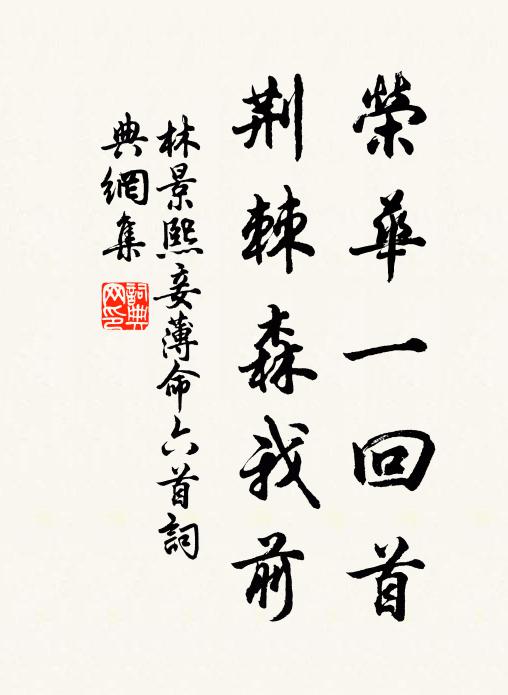 榮華一回首
荆棘森我前
林景熙妾薄命六首詞
典網集
詞典
网印